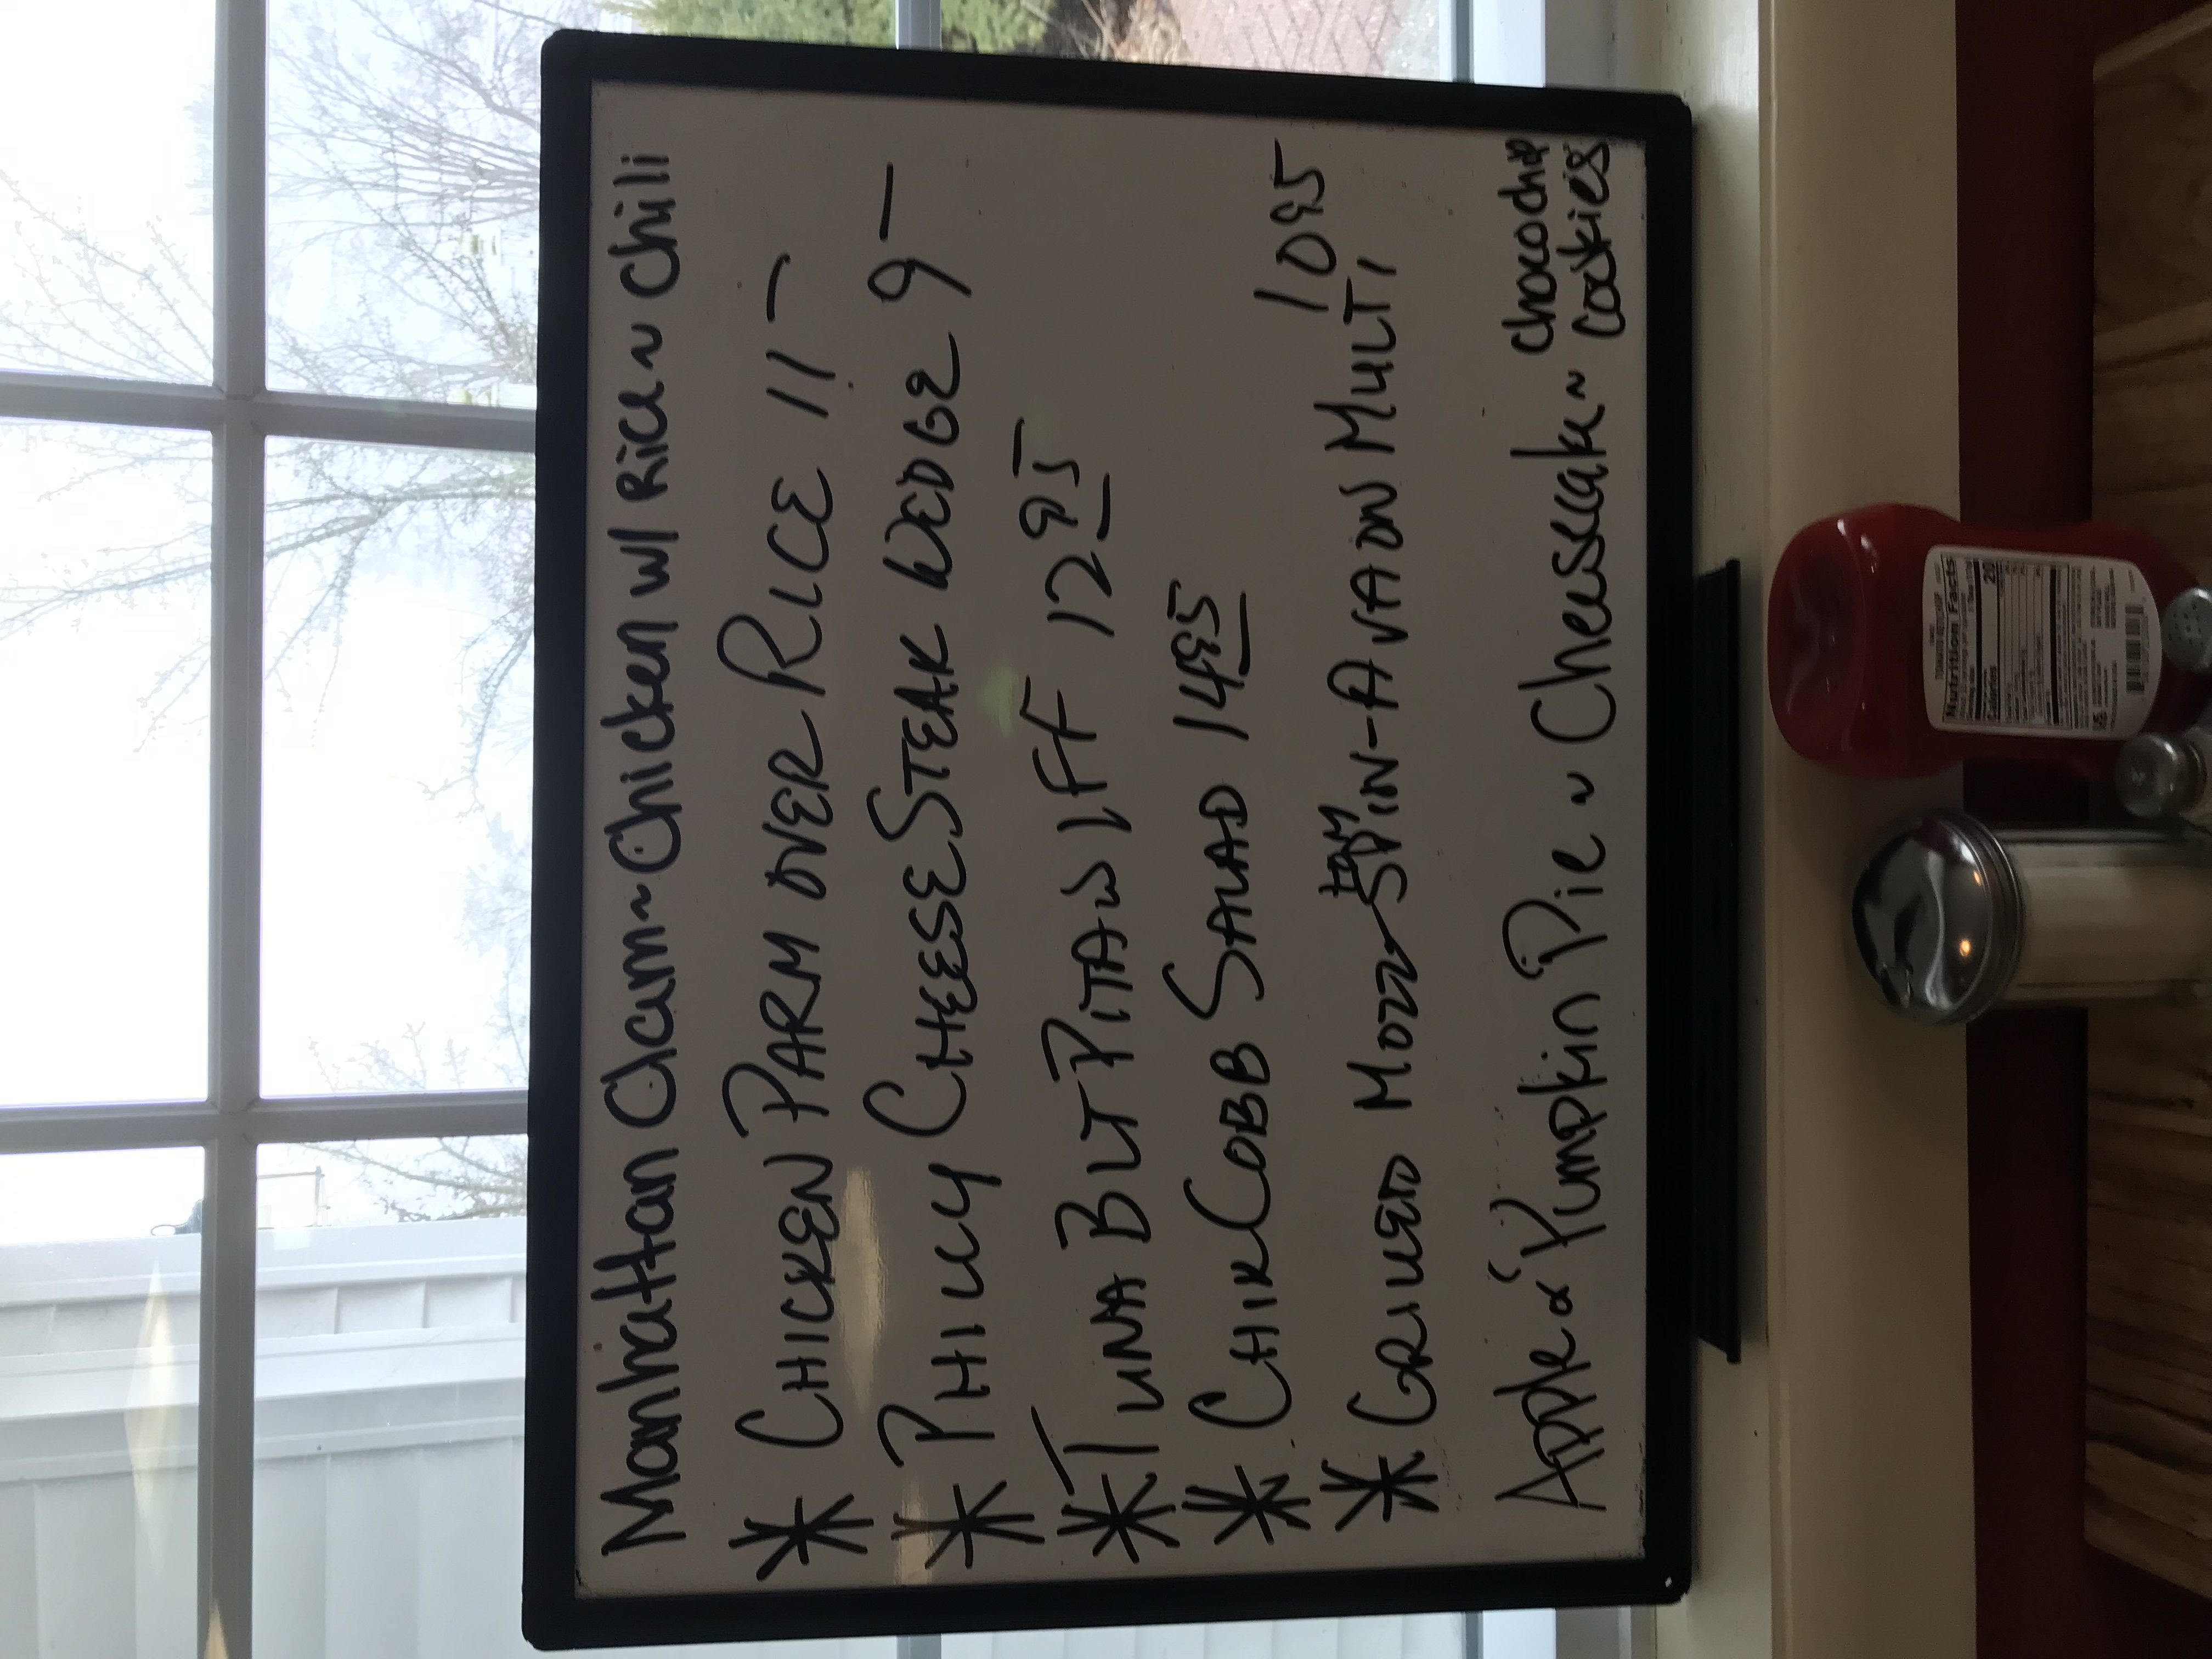 Manhattan Clam ~ Chicken w/ Rice ~ Chili
* CHICKEN PARM OVER RICE 11 —
* PHILLY CHEESE STEAK WEDGE 9 —
* TUNA BLT PITA W/ FF 12 95
* CHIK COBB SALAD 14 95
* GRILLED MOZZ TOM SPIN - AVA ON MULTI 10 95
Apple & Pumpkin Pie ~ Cheesecake ~ Chocochip Cookies
Nutrition Facts
Calories 20